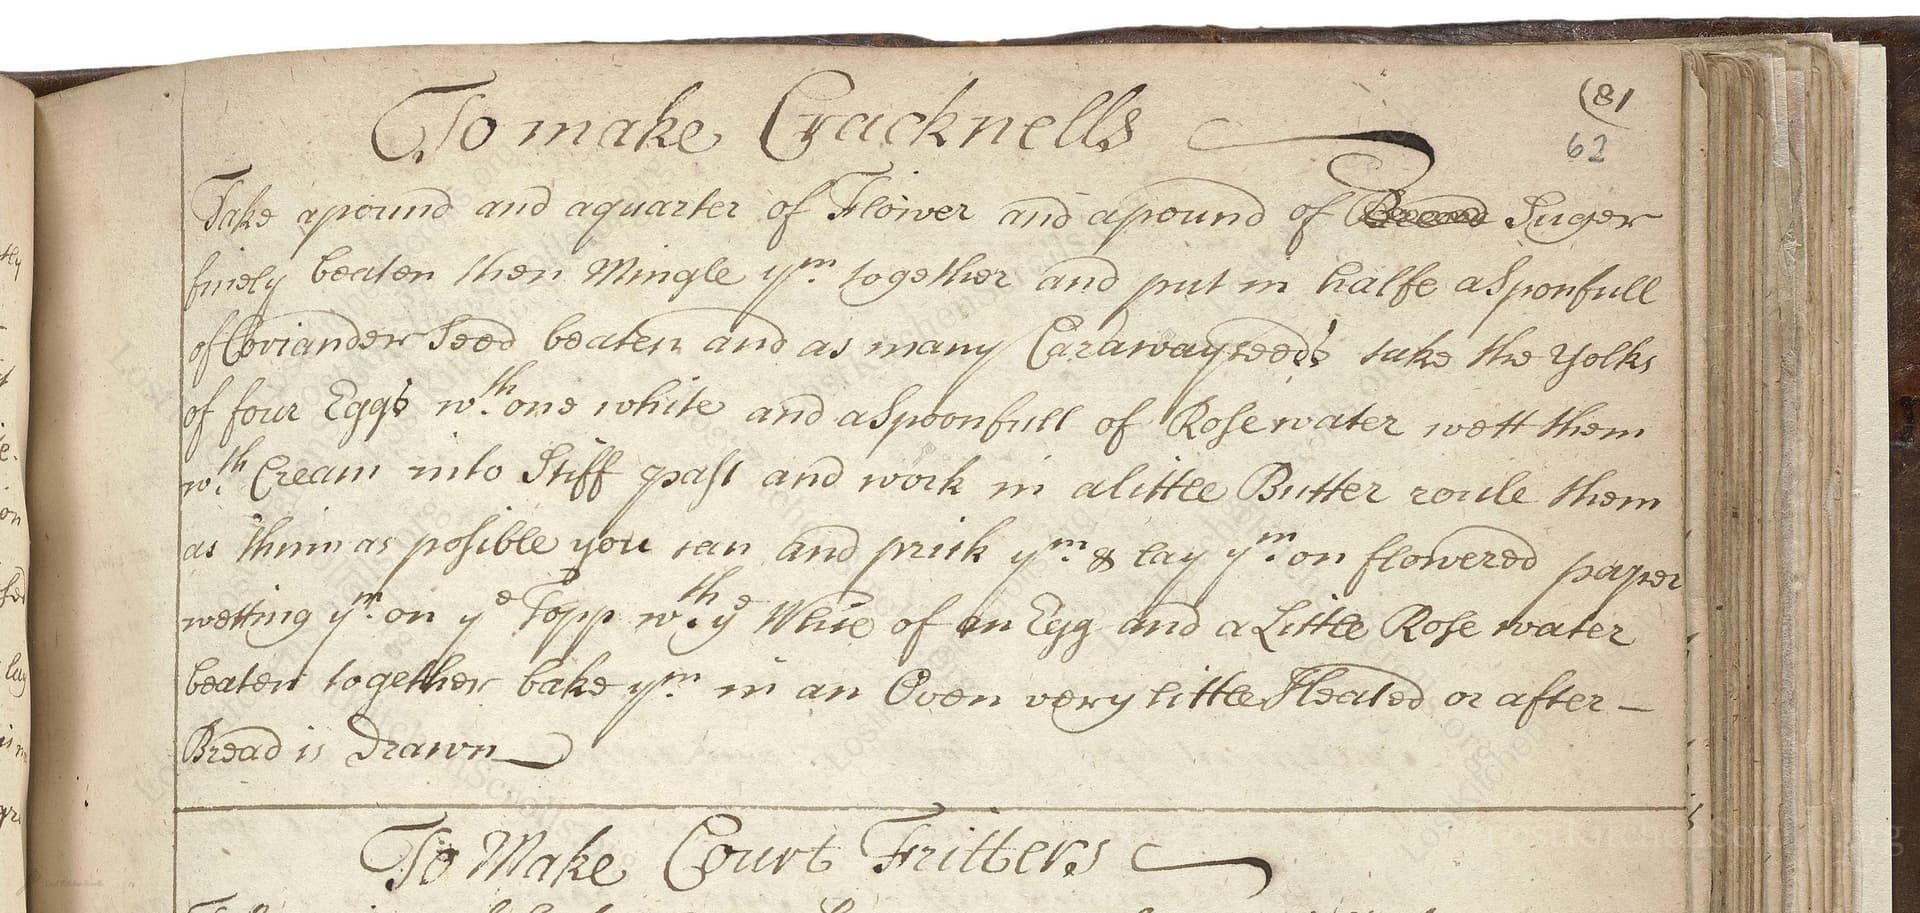 To make Cracknells
(81
62
Take a pound and a quarter of Flower and a pound of Suger
finely beaten then Mingle ym. together and put in halfe a Sponfull
of Coriander Seed beaten and as many Caraway seeds take the Yolks
of four Eggs wth. one white and a Spoonfull of Rose water wett them
wth. Cream into Stiff past and work in a little Butter roule them
as thinn as posible you can and prick ym. & lay ym. on flowered paper
wetting ym. on ye Topp wth. ye White of an Egg and a Little Rose water
beaten together bake ym. in an Oven very little Heated or after
Bread is Drawn
To Make Court Fritters